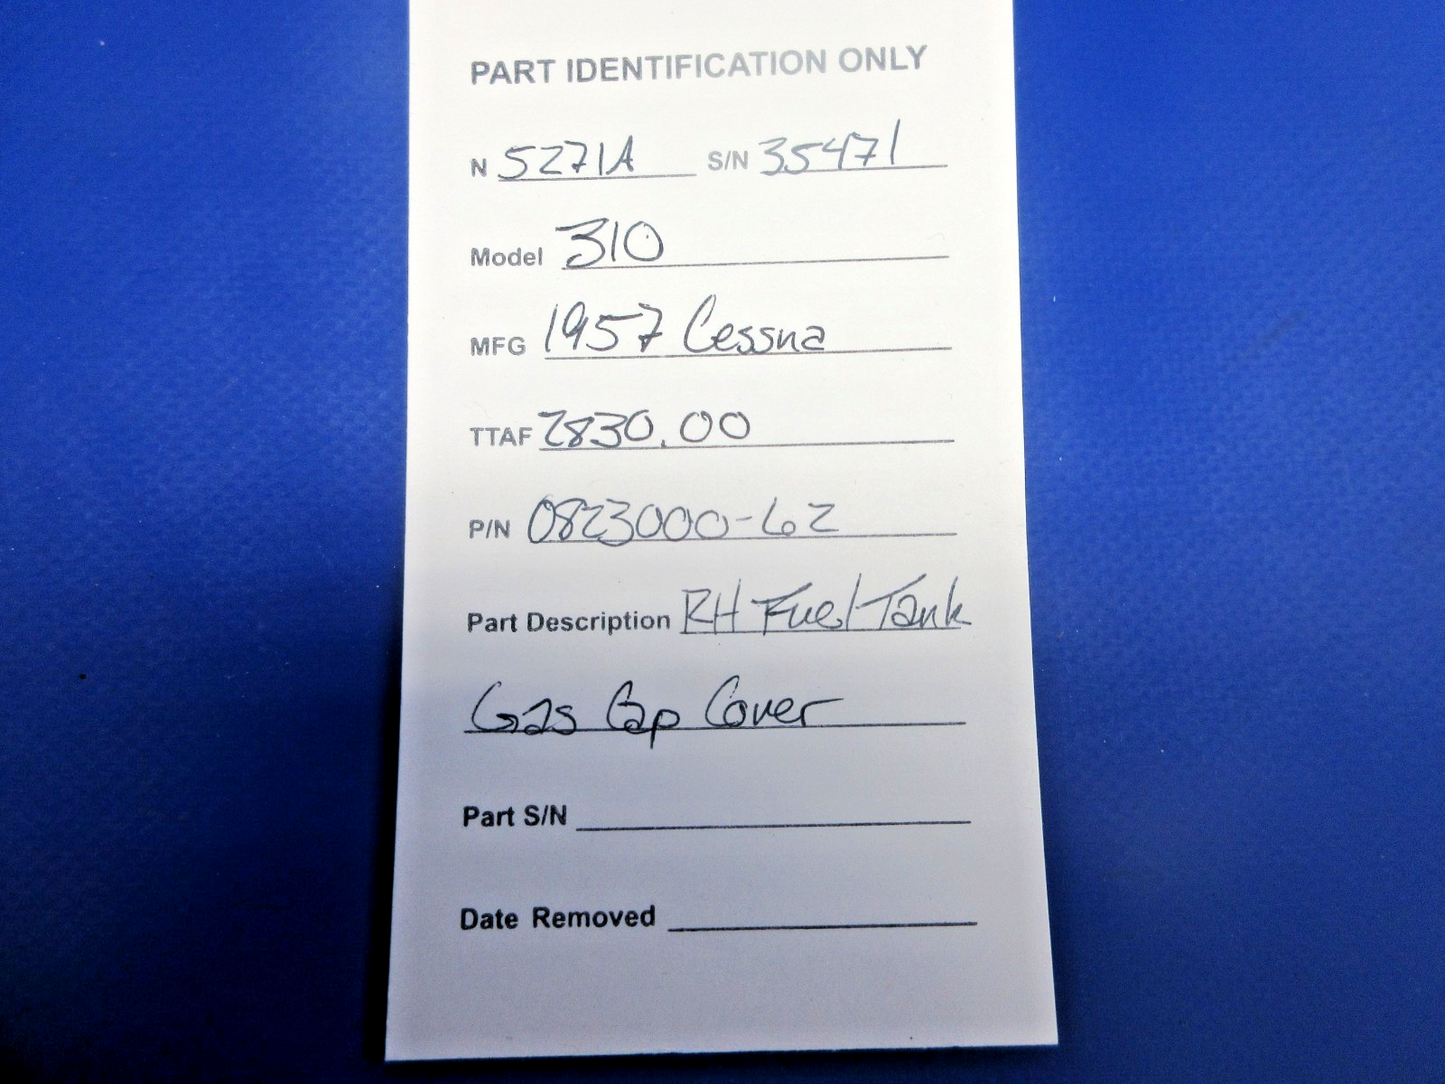 PART IDENTIFICATION ONLY
N 5271A S/N 35471
Model 310
MFG 1957 Cessna
TTAF 2830.00
P/N 0823000-62
Part Description RH Fuel Tank
Gas Cap Cover
Part S/N
Date Removed